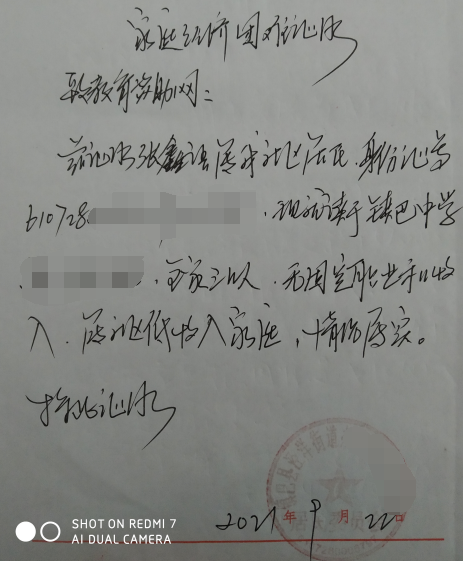 家庭经济困难证明
致教育资助网：
兹证明张鑫语属我社区居民，身份证号
610728
，现就读于镇巴中学
，全家三口人，无固定职业和收
入，属社区低收入家庭，情况属实。
特此证明
2021年9月22日
SHOT ON REDMI 7
AI DUAL CAMERA